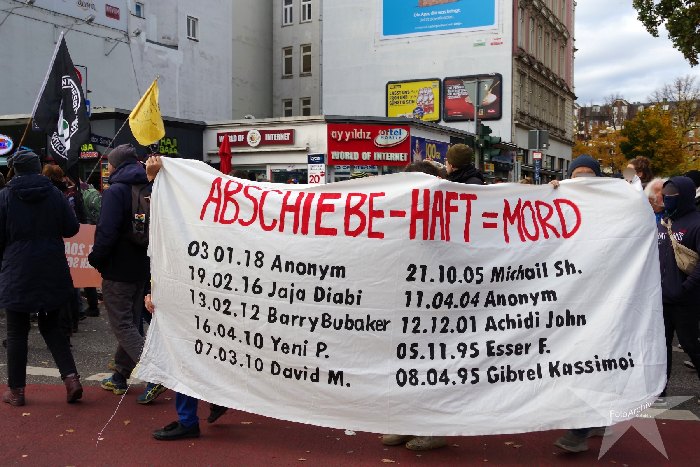 WORLD OF INTERNET
ay yıldız
ortel
WORLD OF INTERNET
20
ABSCHIEBE-HAFT=MORD
03 01.18 Anonym
19.02.16 Jaja Diabi
13.02.12 Barry Bubaker
16.04.10 Yeni P.
07.03.10 David M.
21.10.05 Michail Sh.
11.04.04 Anonym
12.12.01 Achidi John
05.11.95 Esser F.
08.04.95 Gibrel Kassimoi